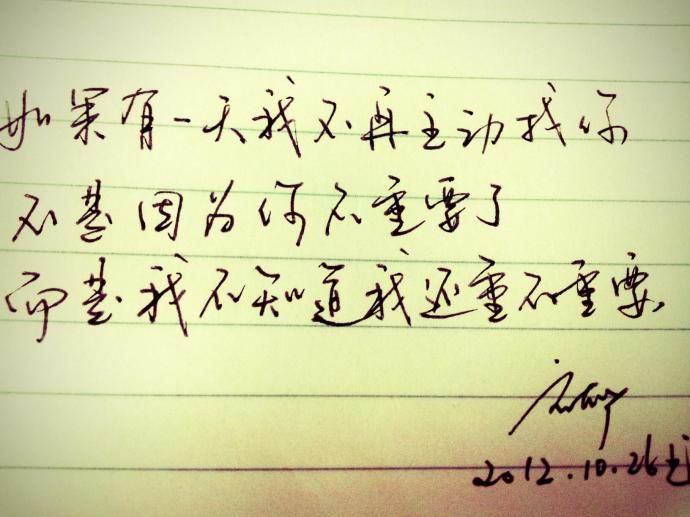 如果有一天我不再主动找你
不是因为你不重要了
而是我不知道我还重不重要
2012.10.26